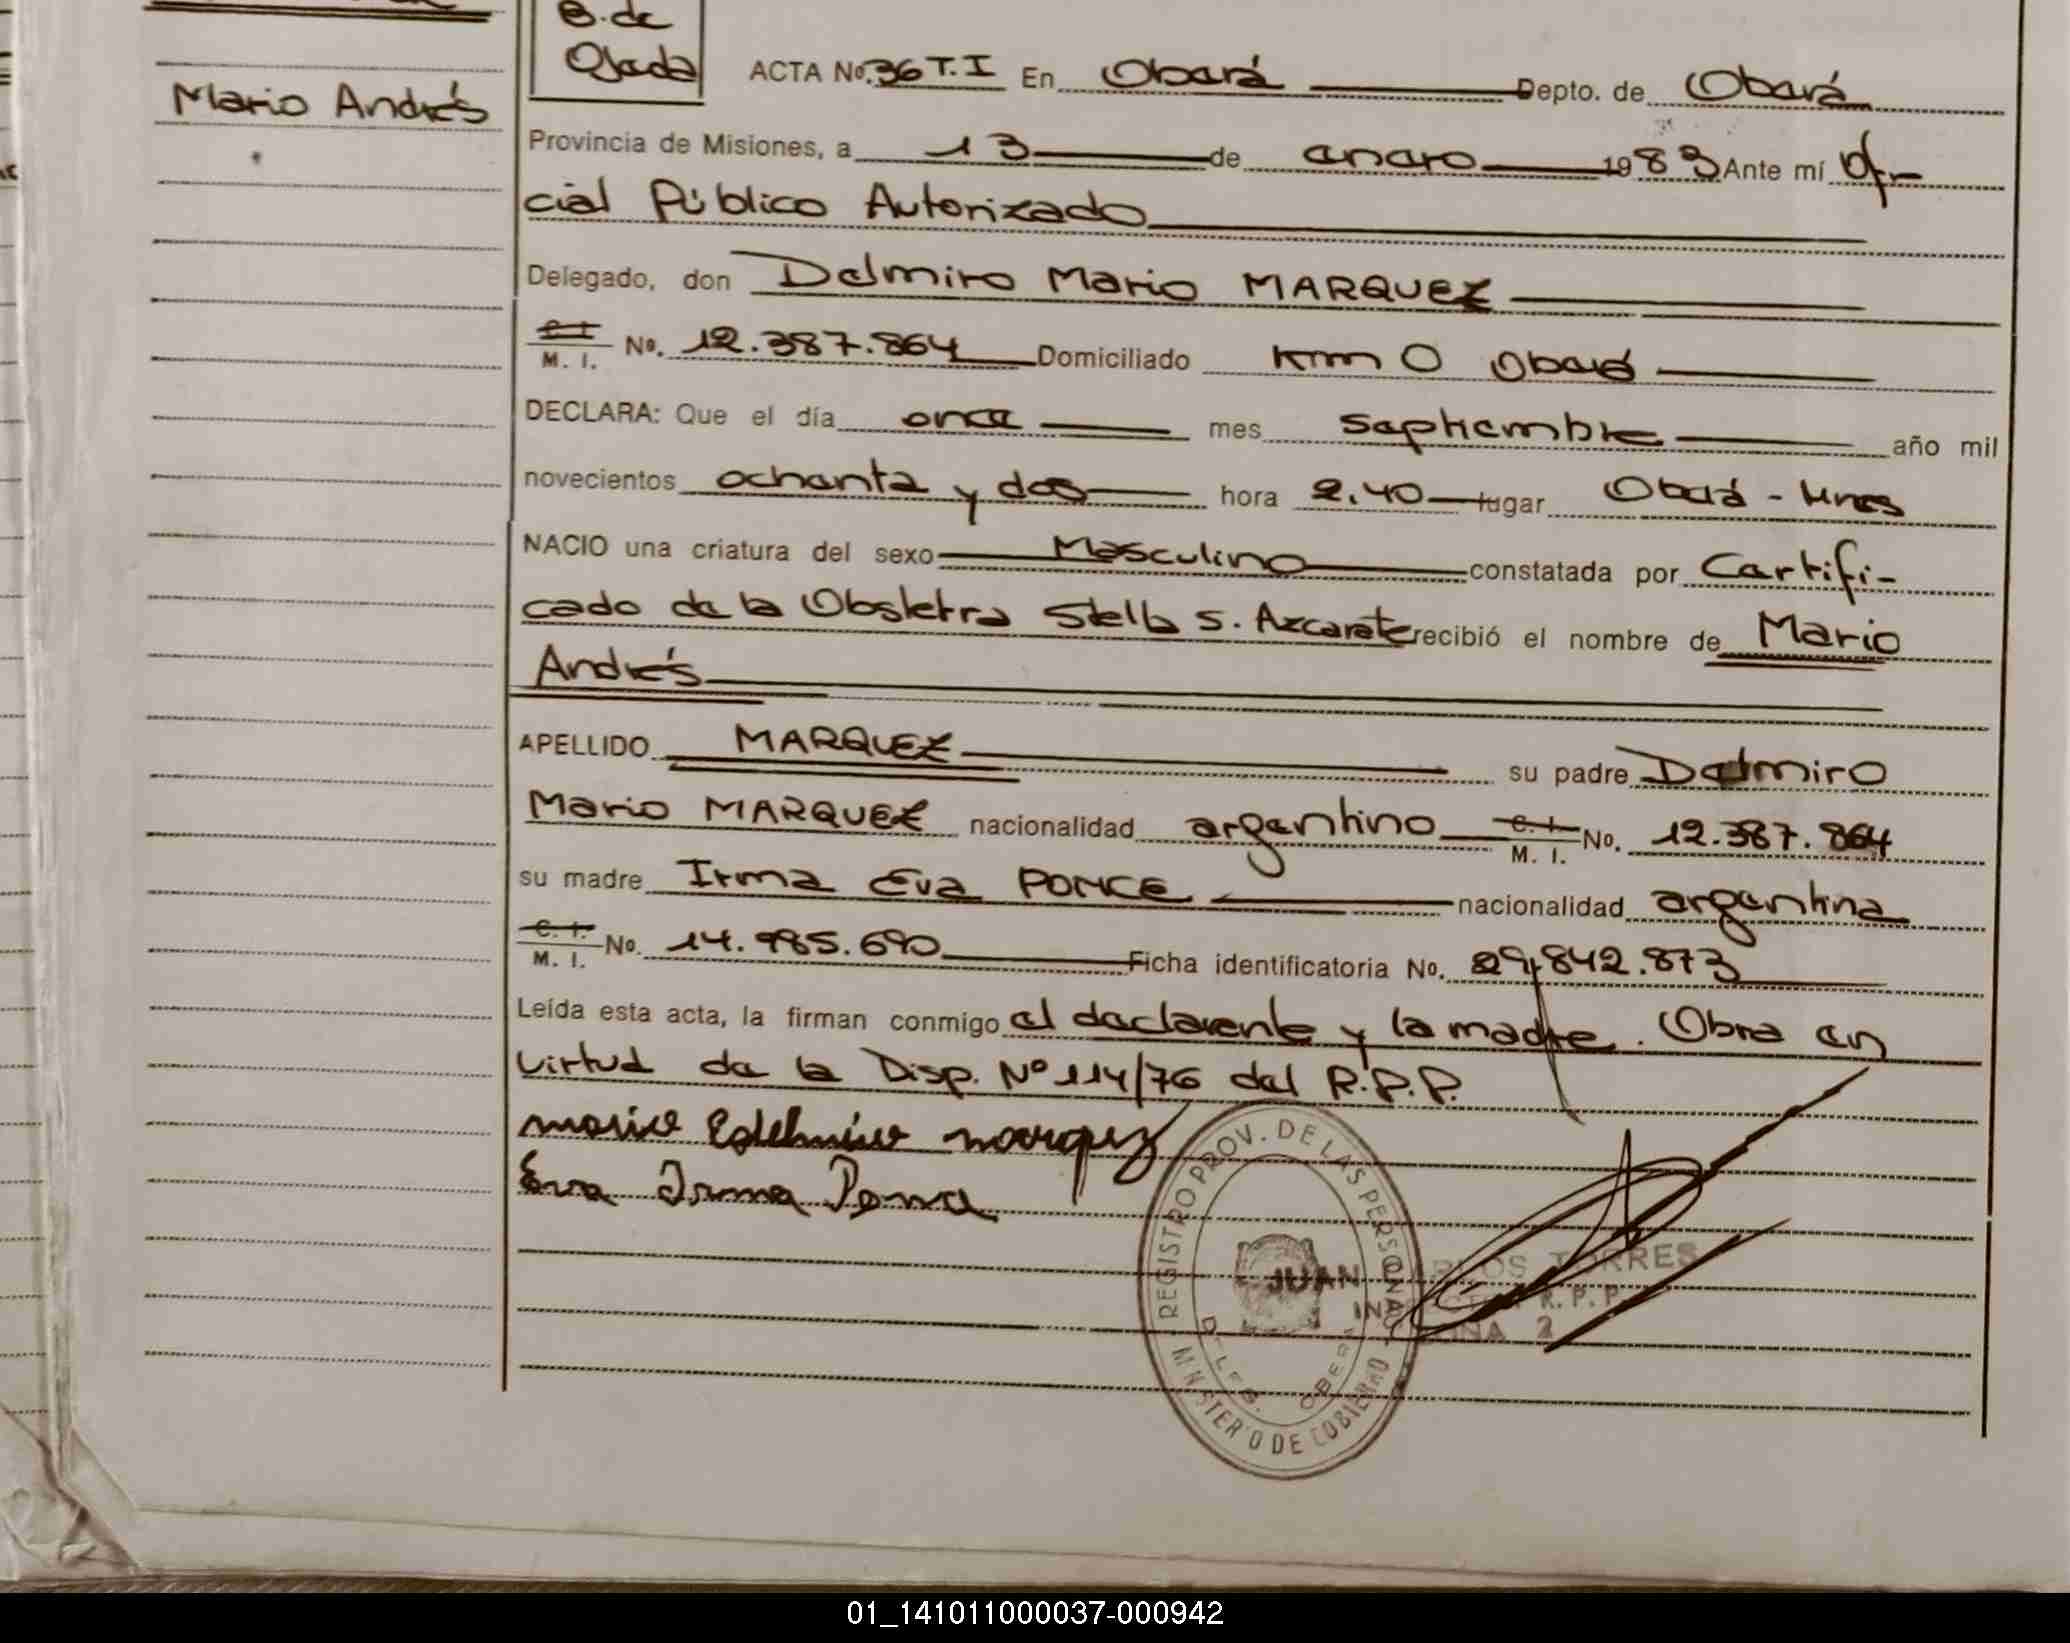 B. de
Ojeda
Mario Andrés
ACTA No. 36 T. I En Oberá Depto. de Oberá
Provincia de Misiones, a 13 de enero 1983 Ante mí Ofi-
cial Público Autorizado
Delegado, don Delmiro Mario MARQUEZ
C. I. M. I. No. 12.387.864 Domiciliado Km 0 Oberá
DECLARA: Que el día once mes septiembre año mil
novecientos ochenta y dos hora 2.40 lugar Oberá - Mnes
NACIO una criatura del sexo Masculino constatada por Certifi-
cado de la Obstetra Stella S. Azcarate recibió el nombre de Mario
Andrés
APELLIDO MARQUEZ su padre Delmiro
Mario MARQUEZ nacionalidad argentino C. I. M. I. No. 12.387.864
su madre Irma Eva PONCE nacionalidad argentina
C. I. M. I. No. 14.985.690 Ficha identificatoria No. 29.842.873
Leída esta acta, la firman conmigo el declarente y la madre. Obra en
virtud de la Disp. Nº 114/76 del R.P.P.
mario Edelmiro marquez
Eva Irma Ponce
REGISTRO PROV. DE LAS PERSONAS
MINISTERIO DE GOBIERNO
DELEG. OBERA
JUAN CARLOS TORRES
R. P. P.
2
01_141011000037-000942